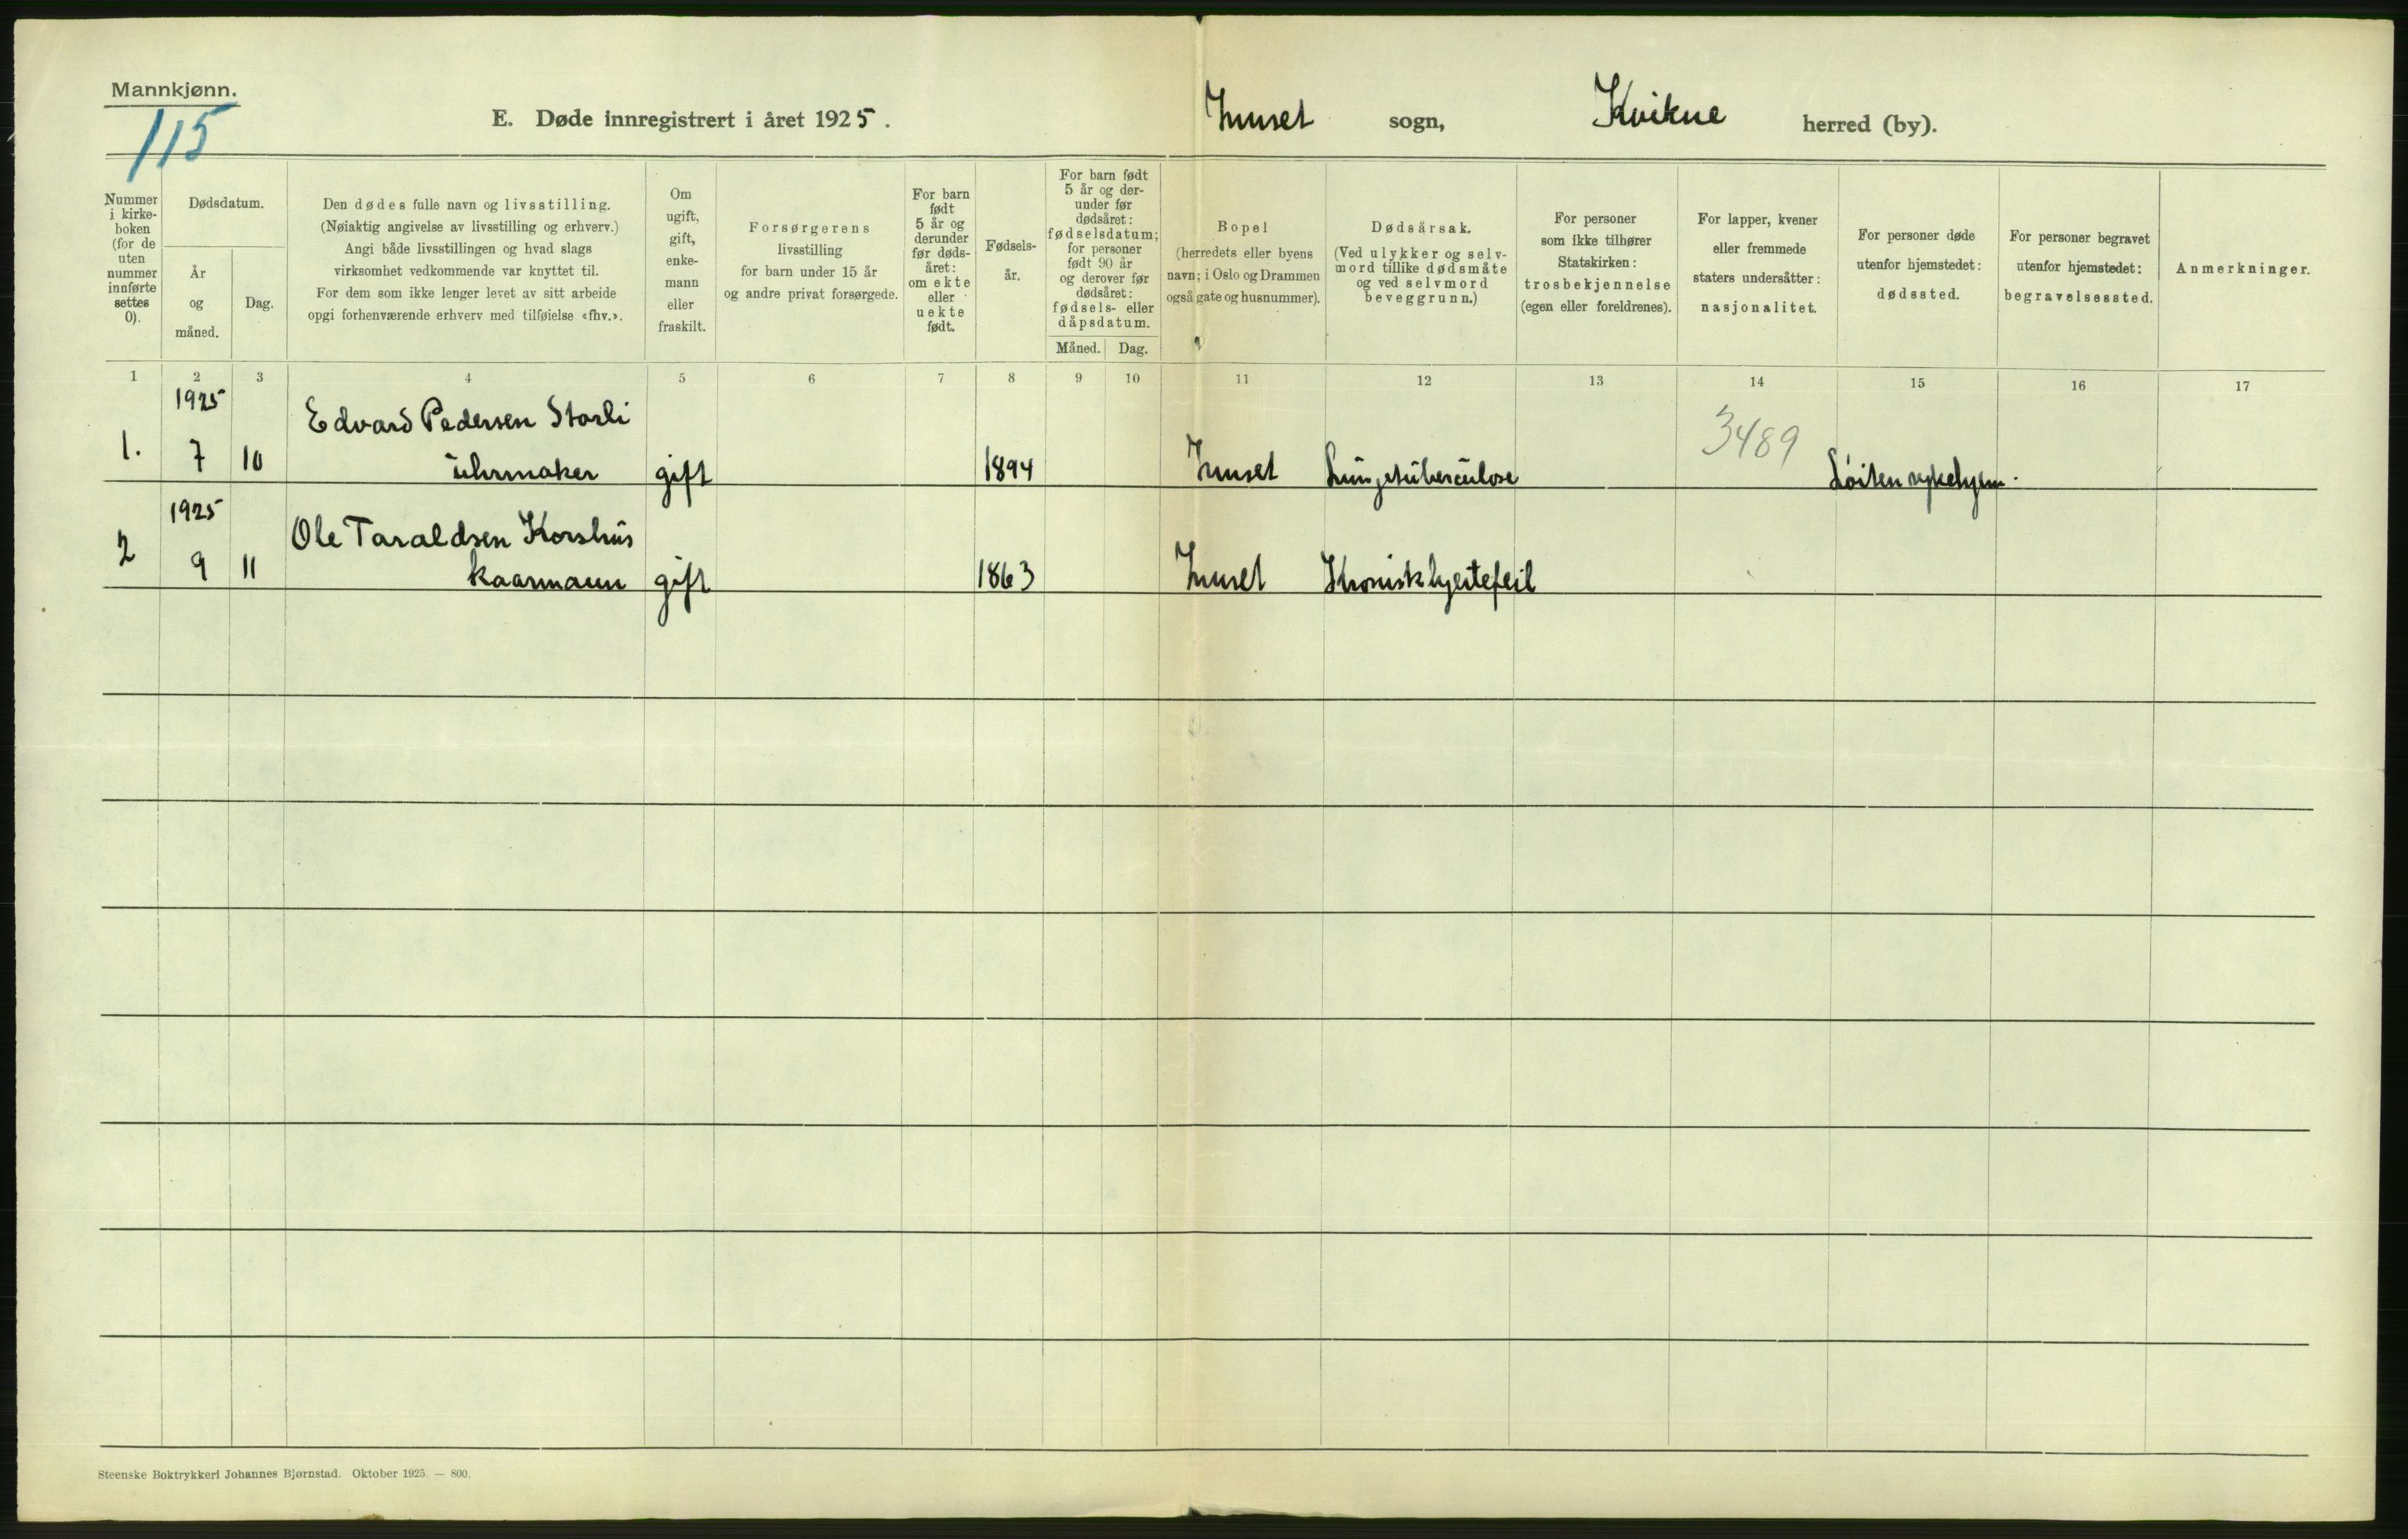 Mannkjønn.
115
E. Døde innregistrert i året 1925. Innset sogn, Kvikne herred (by).
Nummer i kirke- boken (for de uten nummer innførte settes 0).
Dødsdatum.
År og måned.
Dag.
Den dødes fulle navn og livsstilling.
(Nøiaktig angivelse av livsstilling og erhverv.)
Angi både livsstillingen og hvad slags
virksomhet vedkommende var knyttet til.
For dem som ikke lenger levet av sitt arbeide
opgi forhenværende erhverv med tilføielse «fhv.».
Om ugift, gift, enke- mann eller fraskilt.
Forsørgerens
livsstilling
for barn under 15 år
og andre privat forsørgede.
For barn født 5 år og derunder før døds- året: om ekte eller uekte født.
Fødsels- år.
For barn født 5 år og der- under før dødsåret: fødselsdatum; for personer født 90 år og derover før dødsåret: fødsels- eller dåpsdatum.
Måned. Dag.
Bopel
(herredets eller byens
navn; i Oslo og Drammen
også gate og husnummer).
Dødsårsak.
(Ved ulykker og selv-
mord tillike dødsmåte
og ved selvmord
beveggrunn.)
For personer
som ikke tilhører
Statskirken:
trosbekjennelse
(egen eller foreldrenes).
For lapper, kvener
eller fremmede
staters undersåtter:
nasjonalitet.
For personer døde
utenfor hjemstedet:
dødssted.
For personer begravet
utenfor hjemstedet:
begravelsessted.
Anmerkninger.
1 2 3 4 5 6 7 8 9 10 11 12 13 14 15 16 17
1925 Edvard Pedersen Storli 3489
1. 7 10 uhrmaker gift 1894 Innset Lungetuberculose Löiten sykehjem.
1925 Ole Taraldsen Korshus
2 9 11 kaarmann gift 1863 Innset Kronisk hjertefeil
Steenske Boktrykkeri Johannes Bjørnstad. Oktober 1925. — 800.